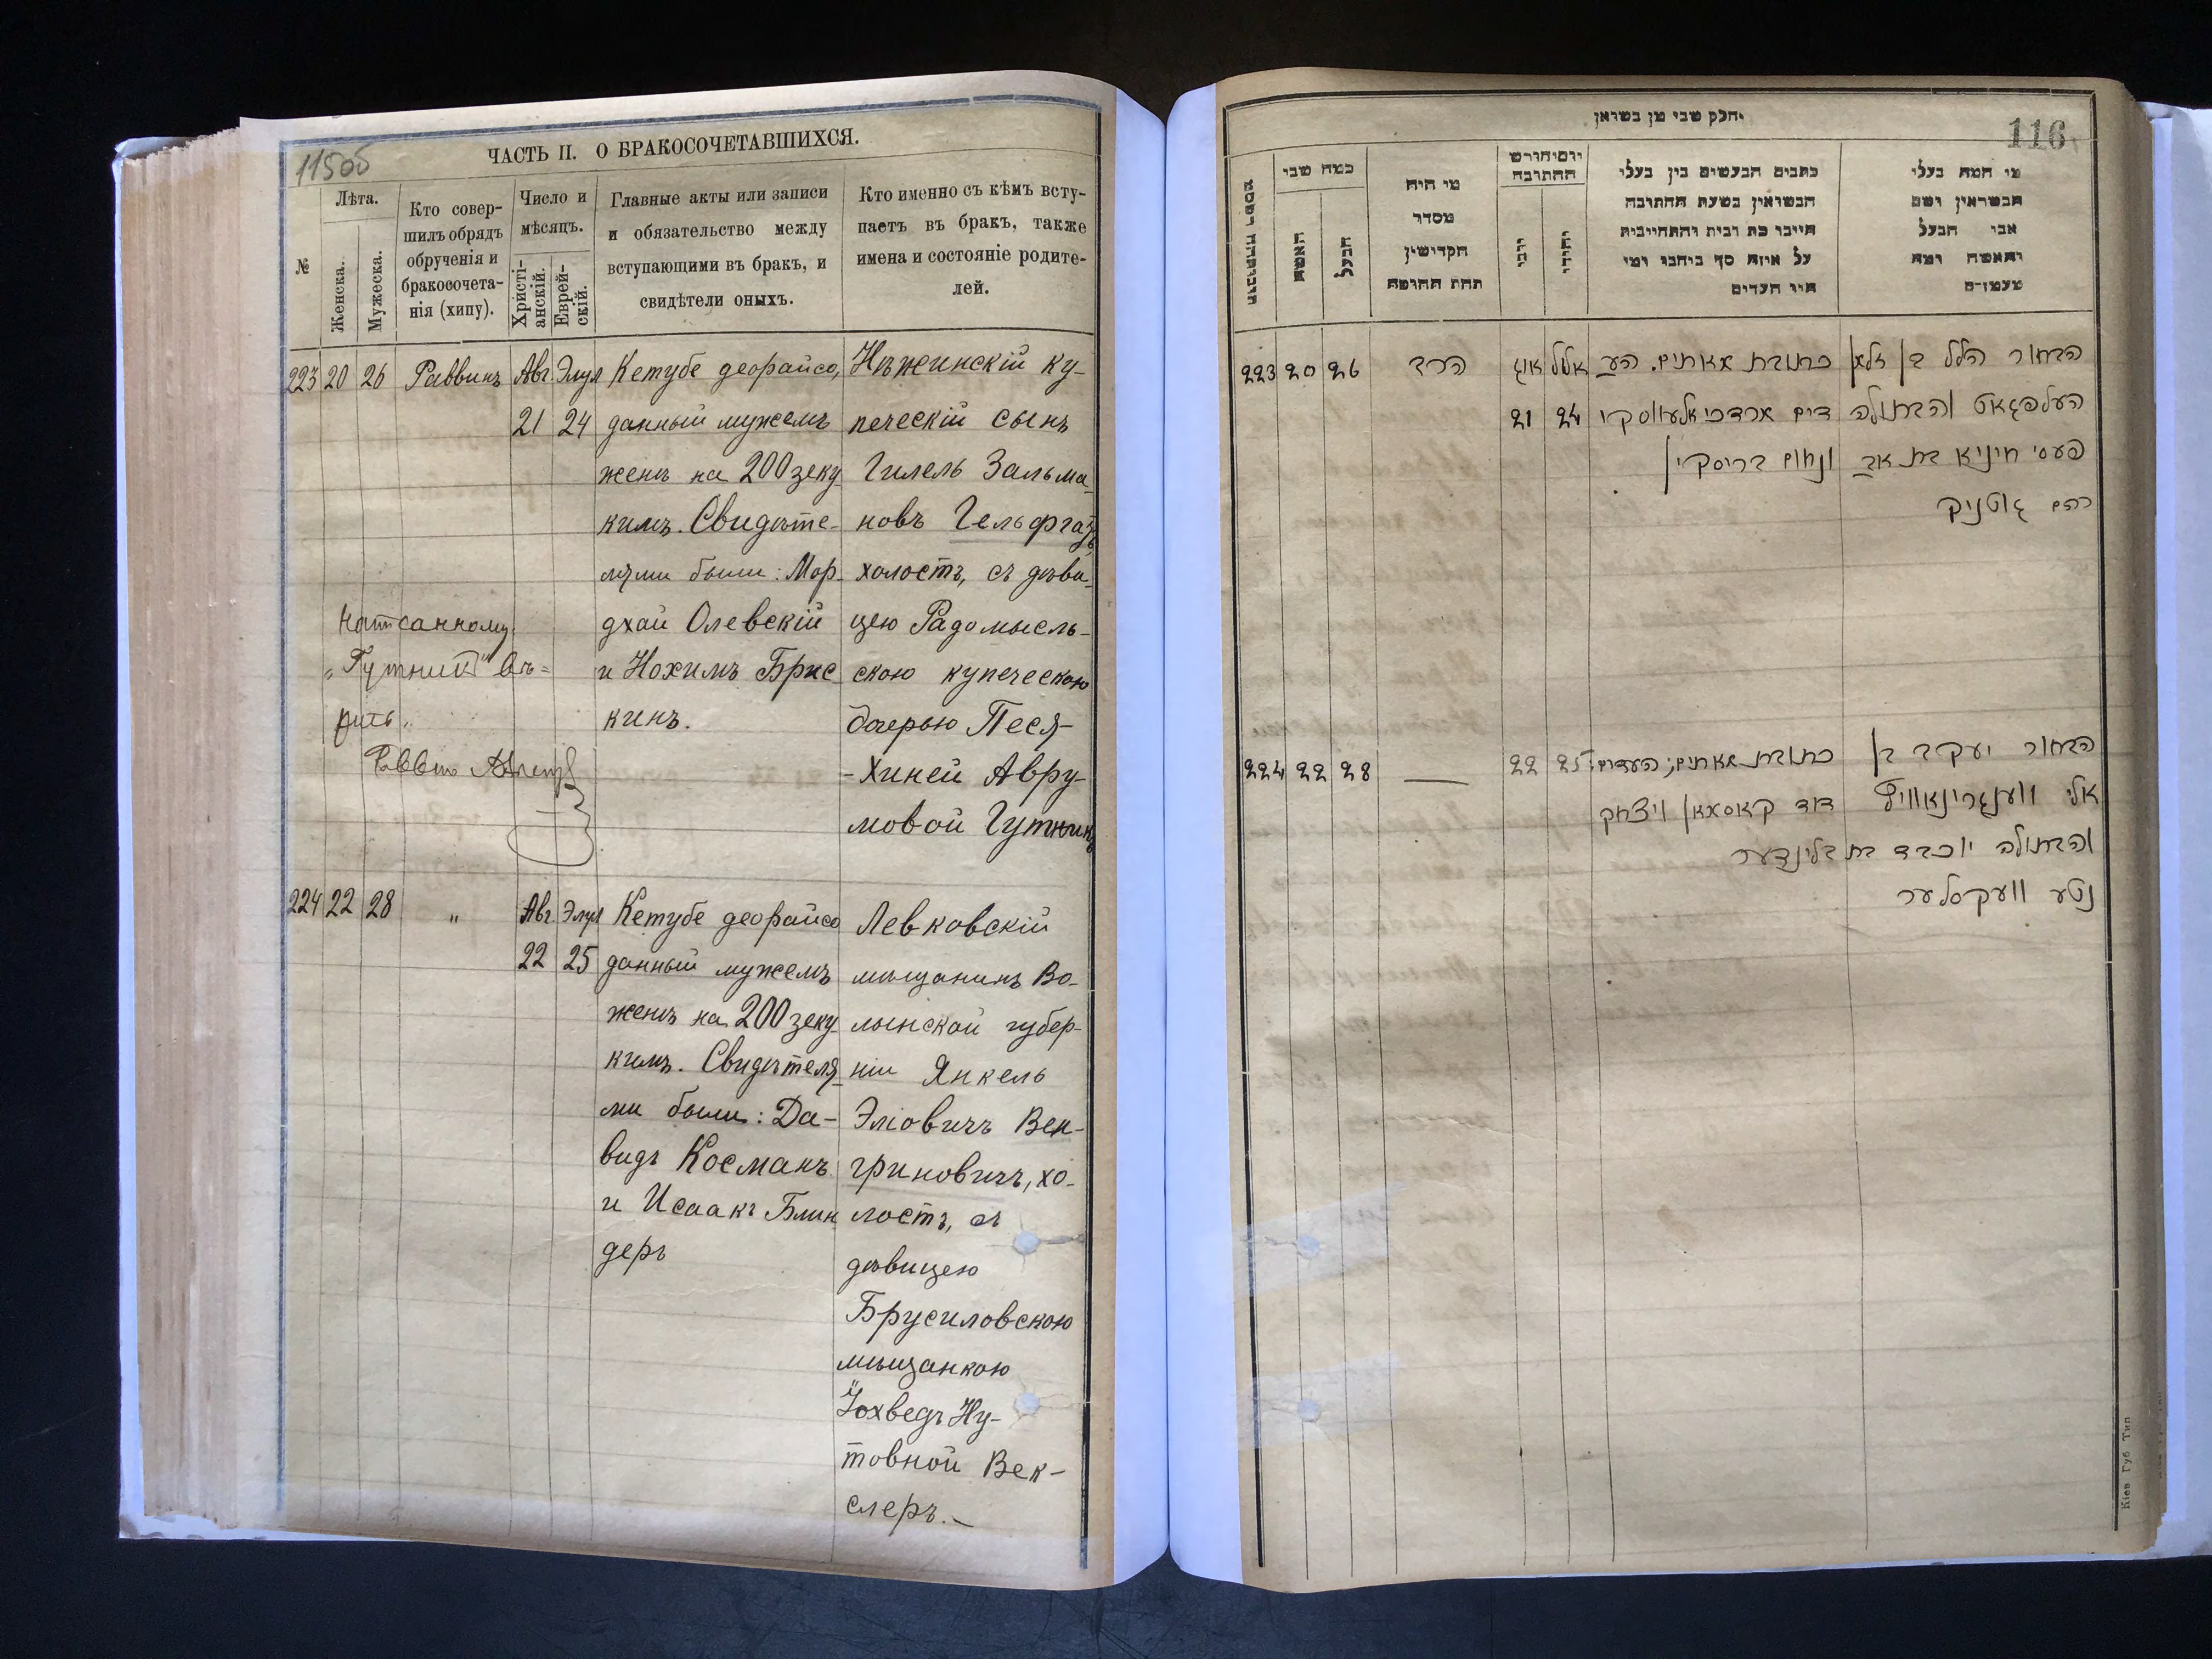 115об
ЧАСТЬ II. О БРАКОСОЧЕТАВШИХСЯ.
№
Лѣта.
Женска.
Мужеска.
Кто совер-
шилъ обрядъ
обрученія и
бракосочета-
нія (хипу).
Число и
мѣсяцъ.
Христі-
анскій.
Еврей-
скій.
Главные акты или записи
и обязательство между
вступающими въ бракъ, и
свидѣтели оныхъ.
Кто именно съ кѣмъ всту-
паетъ въ бракъ, также
имена и состояніе родите-
лей.
223 20 26 Раввинъ Авг. Элул
21 24
Кетубе деорайсо,
данный мужемъ
женѣ на 200 зеку
кимъ. Свидѣте-
лями были: Мор-
дхай Олевскій
и Нохимъ Брис-
кинъ.
Нѣжинскій ку-
печескій сынъ
Гилель Зальма-
новъ Гельфгатъ,
холостъ, съ дѣви-
цею Радомысль-
скою купеческою
дочерью Песя-
-Хиней Авру-
мовой Гутникъ
Написанному
„Гутникъ“ вѣ-
рить.
Раввинъ
224 22 28 „ Авг. Элул
22 25
Кетубе деорайсо
данный мужемъ
женѣ на 200 зеку
кимъ. Свидѣтеля-
ми были: Да-
видъ Косманъ
и Исаакъ Блин
деръ
Левковскій
мѣщанинъ Во-
лынской губер-
ніи Янкель
Эліовичъ Вен-
гриновичъ, хо-
лостъ, съ
дѣвицею
Брусиловскою
мѣщанкою
Іохведъ Ну-
товной Век-
слеръ.–
116
חלק שני מן נשואין
כמה שני
האשה
הבעל
מי היה
מסדר
הקדושין
תחת החופה
יום וחודש
החתונה
נוצרי
יהודי
כתבים הנעשים בין בעלי
הנשואין בשעת החתונה
חיובי כת ובית והתחייבות
על איזה סך ביחבו ומי
היו העדים
מי המה בעלי
הנשואין ושם
אבי הבעל
והאשה ומה
מעמדם
223 20 26 הרב אוג אלול
21 24
כתובת מאתים. הע
דים מרדכי אלעווסקי
ונחום בריסקין
הבחור הלל בן זלמן
העלפגאט והבתולה
פעסי חיניא בת אב
רהם גוטניק
224 22 28 — 22 25
כתובת מאתים; העדים:
דוד קאסמאן ויצחק
בלינדער
הבחור יעקב בן
אלי ווענגרינאוויץ
והבתולה יוכבד בת
נטע וועקסלער
Кіев Губ Тип